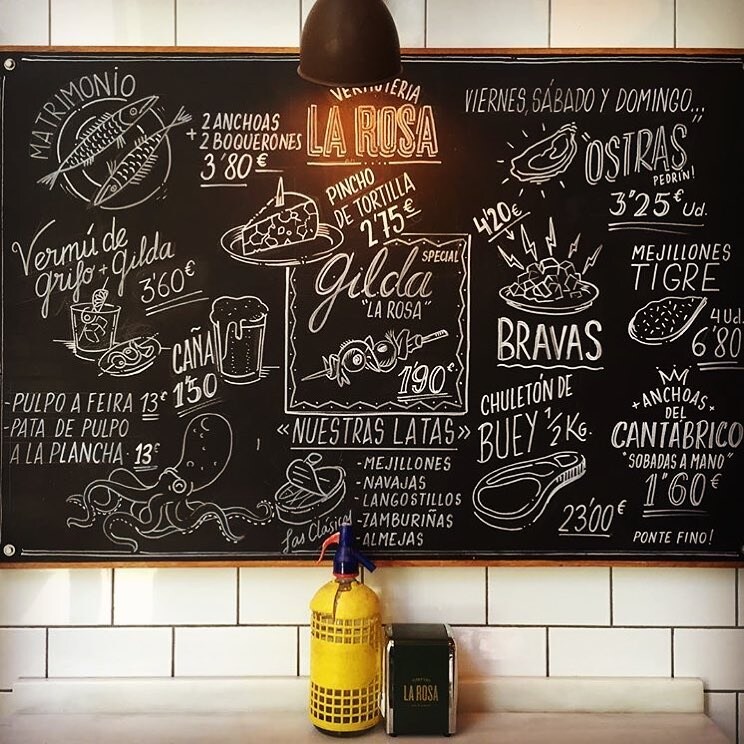 MATRIMONIO
2 ANCHOAS
+ 2 BOQUERONES
3'80 €
Vermú de
grifo + Gilda
3'60€
CAÑA
1'50
- PULPO A FEIRA 13€
- PATA DE PULPO
A LA PLANCHA. 13€
VERMUTERIA
LA ROSA
PINCHO
DE TORTILLA
2'75€
SPECIAL
Gilda
"LA ROSA"
1'90€
«NUESTRAS LATAS»
- MEJILLONES
- NAVAJAS
- LANGOSTILLOS
- ZAMBURIÑAS
- ALMEJAS
Las Clásicas
VIERNES, SÁBADO Y DOMINGO...
"OSTRAS"
PEDRÍN!
3"25€ Ud.
4'20€
BRAVAS
MEJILLONES
TIGRE
4 Ud.
6'80
CHULETÓN DE
BUEY 1/2 KG.
23'00€
+ ANCHOAS +
DEL
CANTÁBRICO
"SOBADAS A MANO"
1'60€
PONTE FINO!
LA ROSA